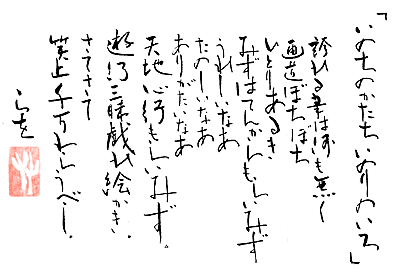 「いのちのかたちいのりのいろ」
誇れる事は何も無く
画道ぼちぼち
ひとりあるき
みずはてんからもらいみず
うれしいなあ
たのしいなあ
ありがたいなあ
天地心のもらいみず。
遊行三昧戯れ絵かき。
さてさて
笑止千万わらうべし。